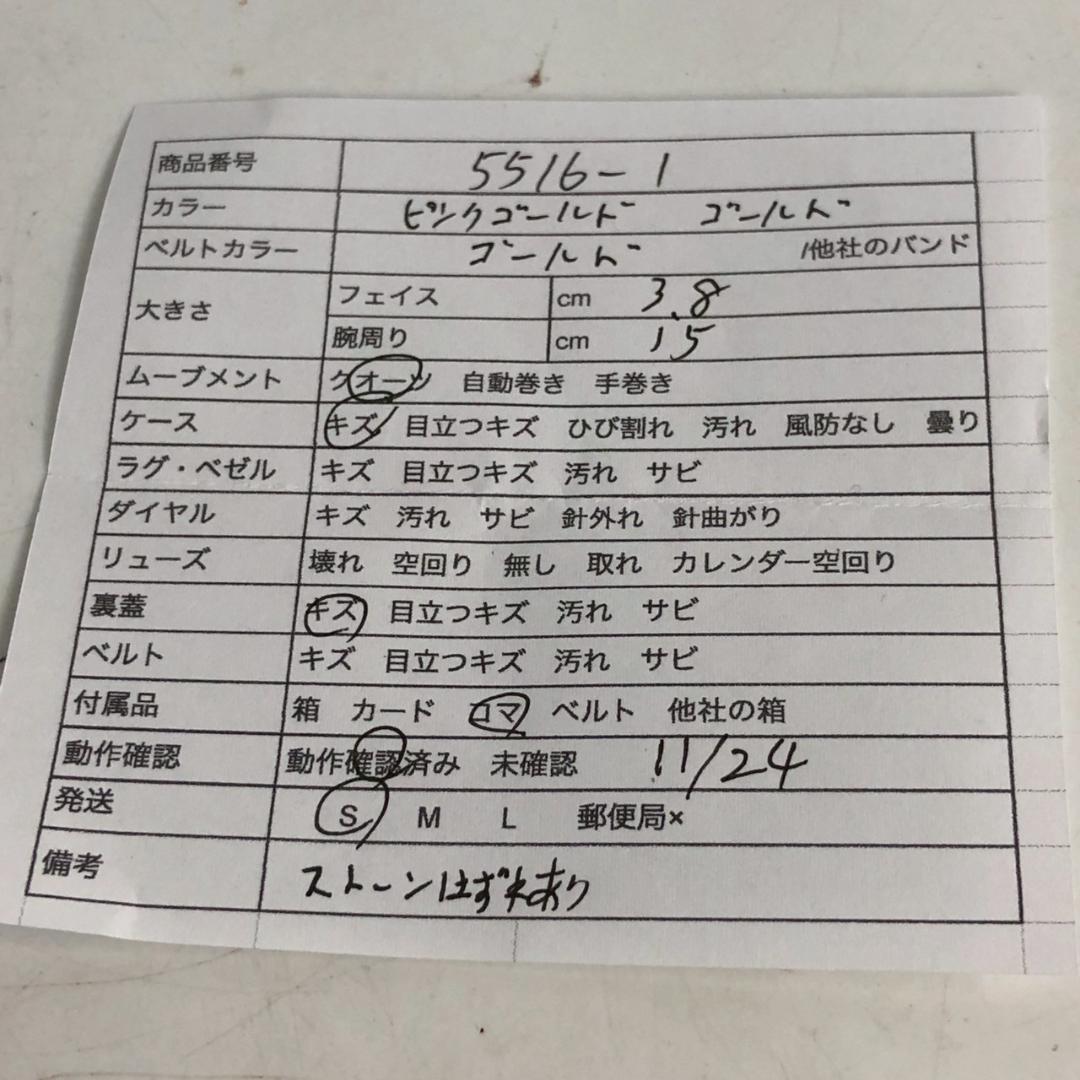 商品番号 5516-1
カラー ピンクゴールド ゴールド
ベルトカラー ゴールド /他社のバンド
大きさ フェイス cm 3.8
腕周り cm 15
ムーブメント クオーツ 自動巻き 手巻き
ケース キズ 目立つキズ ひび割れ 汚れ 風防なし 曇り
ラグ・ベゼル キズ 目立つキズ 汚れ サビ
ダイヤル キズ 汚れ サビ 針外れ 針曲がり
リューズ 壊れ 空回り 無し 取れ カレンダー空回り
裏蓋 キズ 目立つキズ 汚れ サビ
ベルト キズ 目立つキズ 汚れ サビ
付属品 箱 カード コマ ベルト 他社の箱
動作確認 動作確認済み 未確認 11/24
発送 S M L 郵便局×
備考 ストーンはずれあり